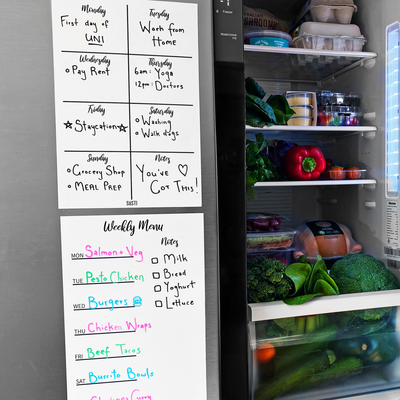 Monday
First day of
UNI
Tuesday
Work from
Home
Wednesday
Pay Rent
Thursday
6am: Yoga
12pm: Doctors
Friday
Staycation
Saturday
Washing
Walk dogs
Sunday
Grocery Shop
MEAL PREP
Notes
You've
Got This!
Weekly Menu
MON Salmon + Veg
TUE Pesto Chicken
WED Burgers
THU Chicken Wraps
FRI Beef Tacos
SAT Burrito Bowls
Notes
Milk
Bread
Yoghurt
Lettuce